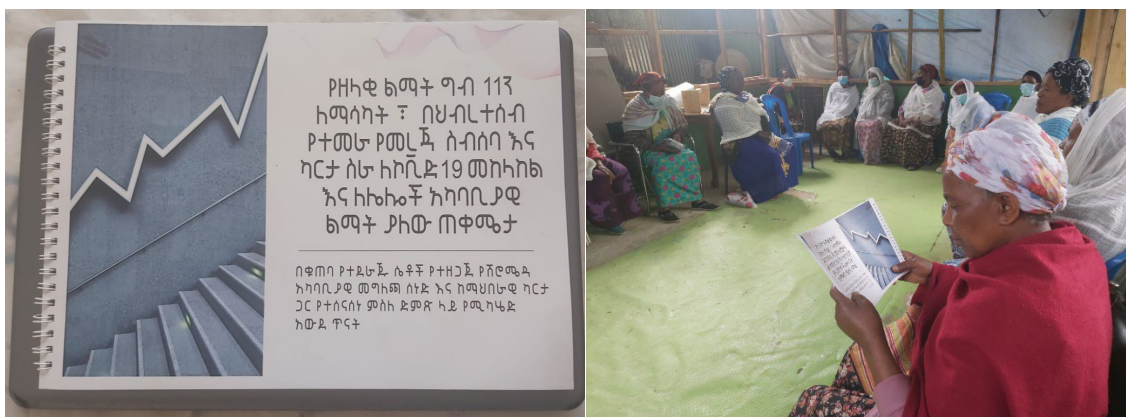 የዘላቂ ልማት ግብ 11ን
ለማሳካት ፣ በህብረተሰብ
የተመራ የመረጃ ስብሰባ እና
ካርታ ስራ ለኮቪድ 19 መከላከል
እና ለሌሎች አካባቢያዊ
ልማት ያለው ጠቀሜታ
በቁጠባ የተደራጁ ሴቶች የተዘጋጀ የሽሮሜዳ
አካባቢያዊ መግለጫ ሰነድ እና ከማህበራዊ ካርታ
ጋር የተሰናሰነ ምስለ ድምጽ ላይ የሚካሄድ
አውደ ጥናት